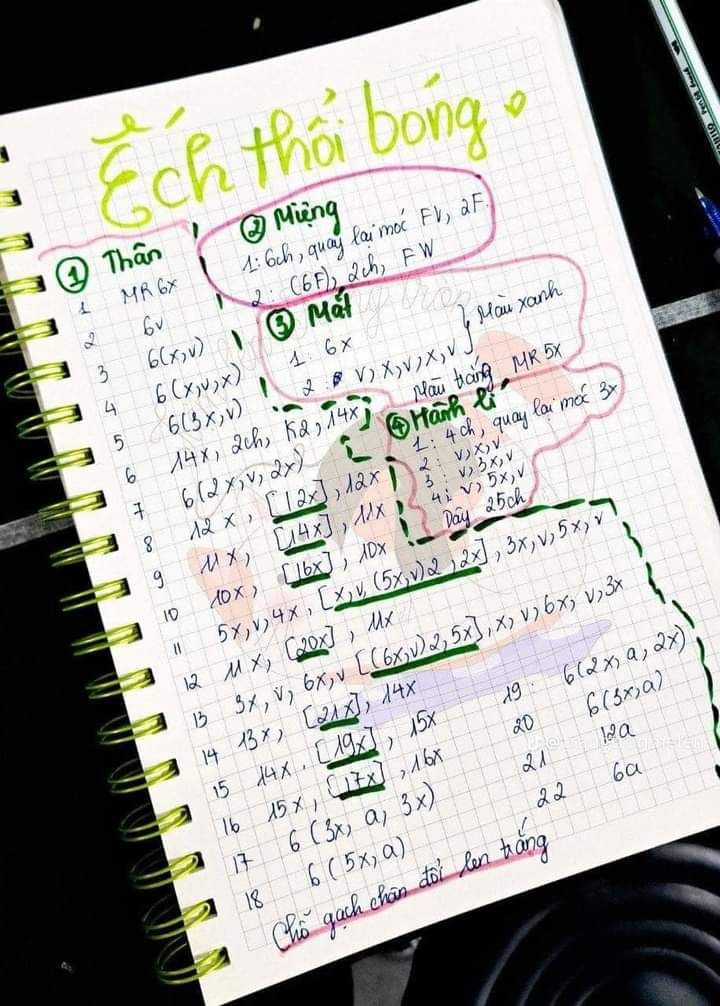 Ếch thổi bóng
① Thân
1 MR 6x
2 6v
3 6(x,v)
4 6(x,v,x)
5 6(3x,v)
6 14x, 2ch, K2, 14x
7 6(2x,v,2x)
8 12x, [12x], 12x
9 11x, [14x], 11x
10 10x, [16x], 10x
11 5x,v,4x, [x,v,(5x,v)2,2x], 3x,v,5x,v
12 11x, [20x], 11x
13 3x,v,6x,v [(6x,v)2,5x], x,v,6x,v,3x
14 13x, [21x], 14x
15 14x, [19x], 15x
16 15x, [17x], 16x
17 6(3x,a,3x)
18 6(5x,a)
19: 6(2x,a,2x)
20 6(3x,a)
21 12a
22 6a
Chỗ gạch chân đổi len trắng
② Miệng
1: 6ch, quay lại móc FV, 2F.
2: (6F), 2ch, FW
③ Mắt
1: 6x
2: v,x,v,x,v
Màu xanh
Màu trắng MR 5x
④ Hành lí
1: 4ch, quay lại móc 3x
2: v,x,v
3: v,3x,v
4: v,5x,v
Dây 25ch